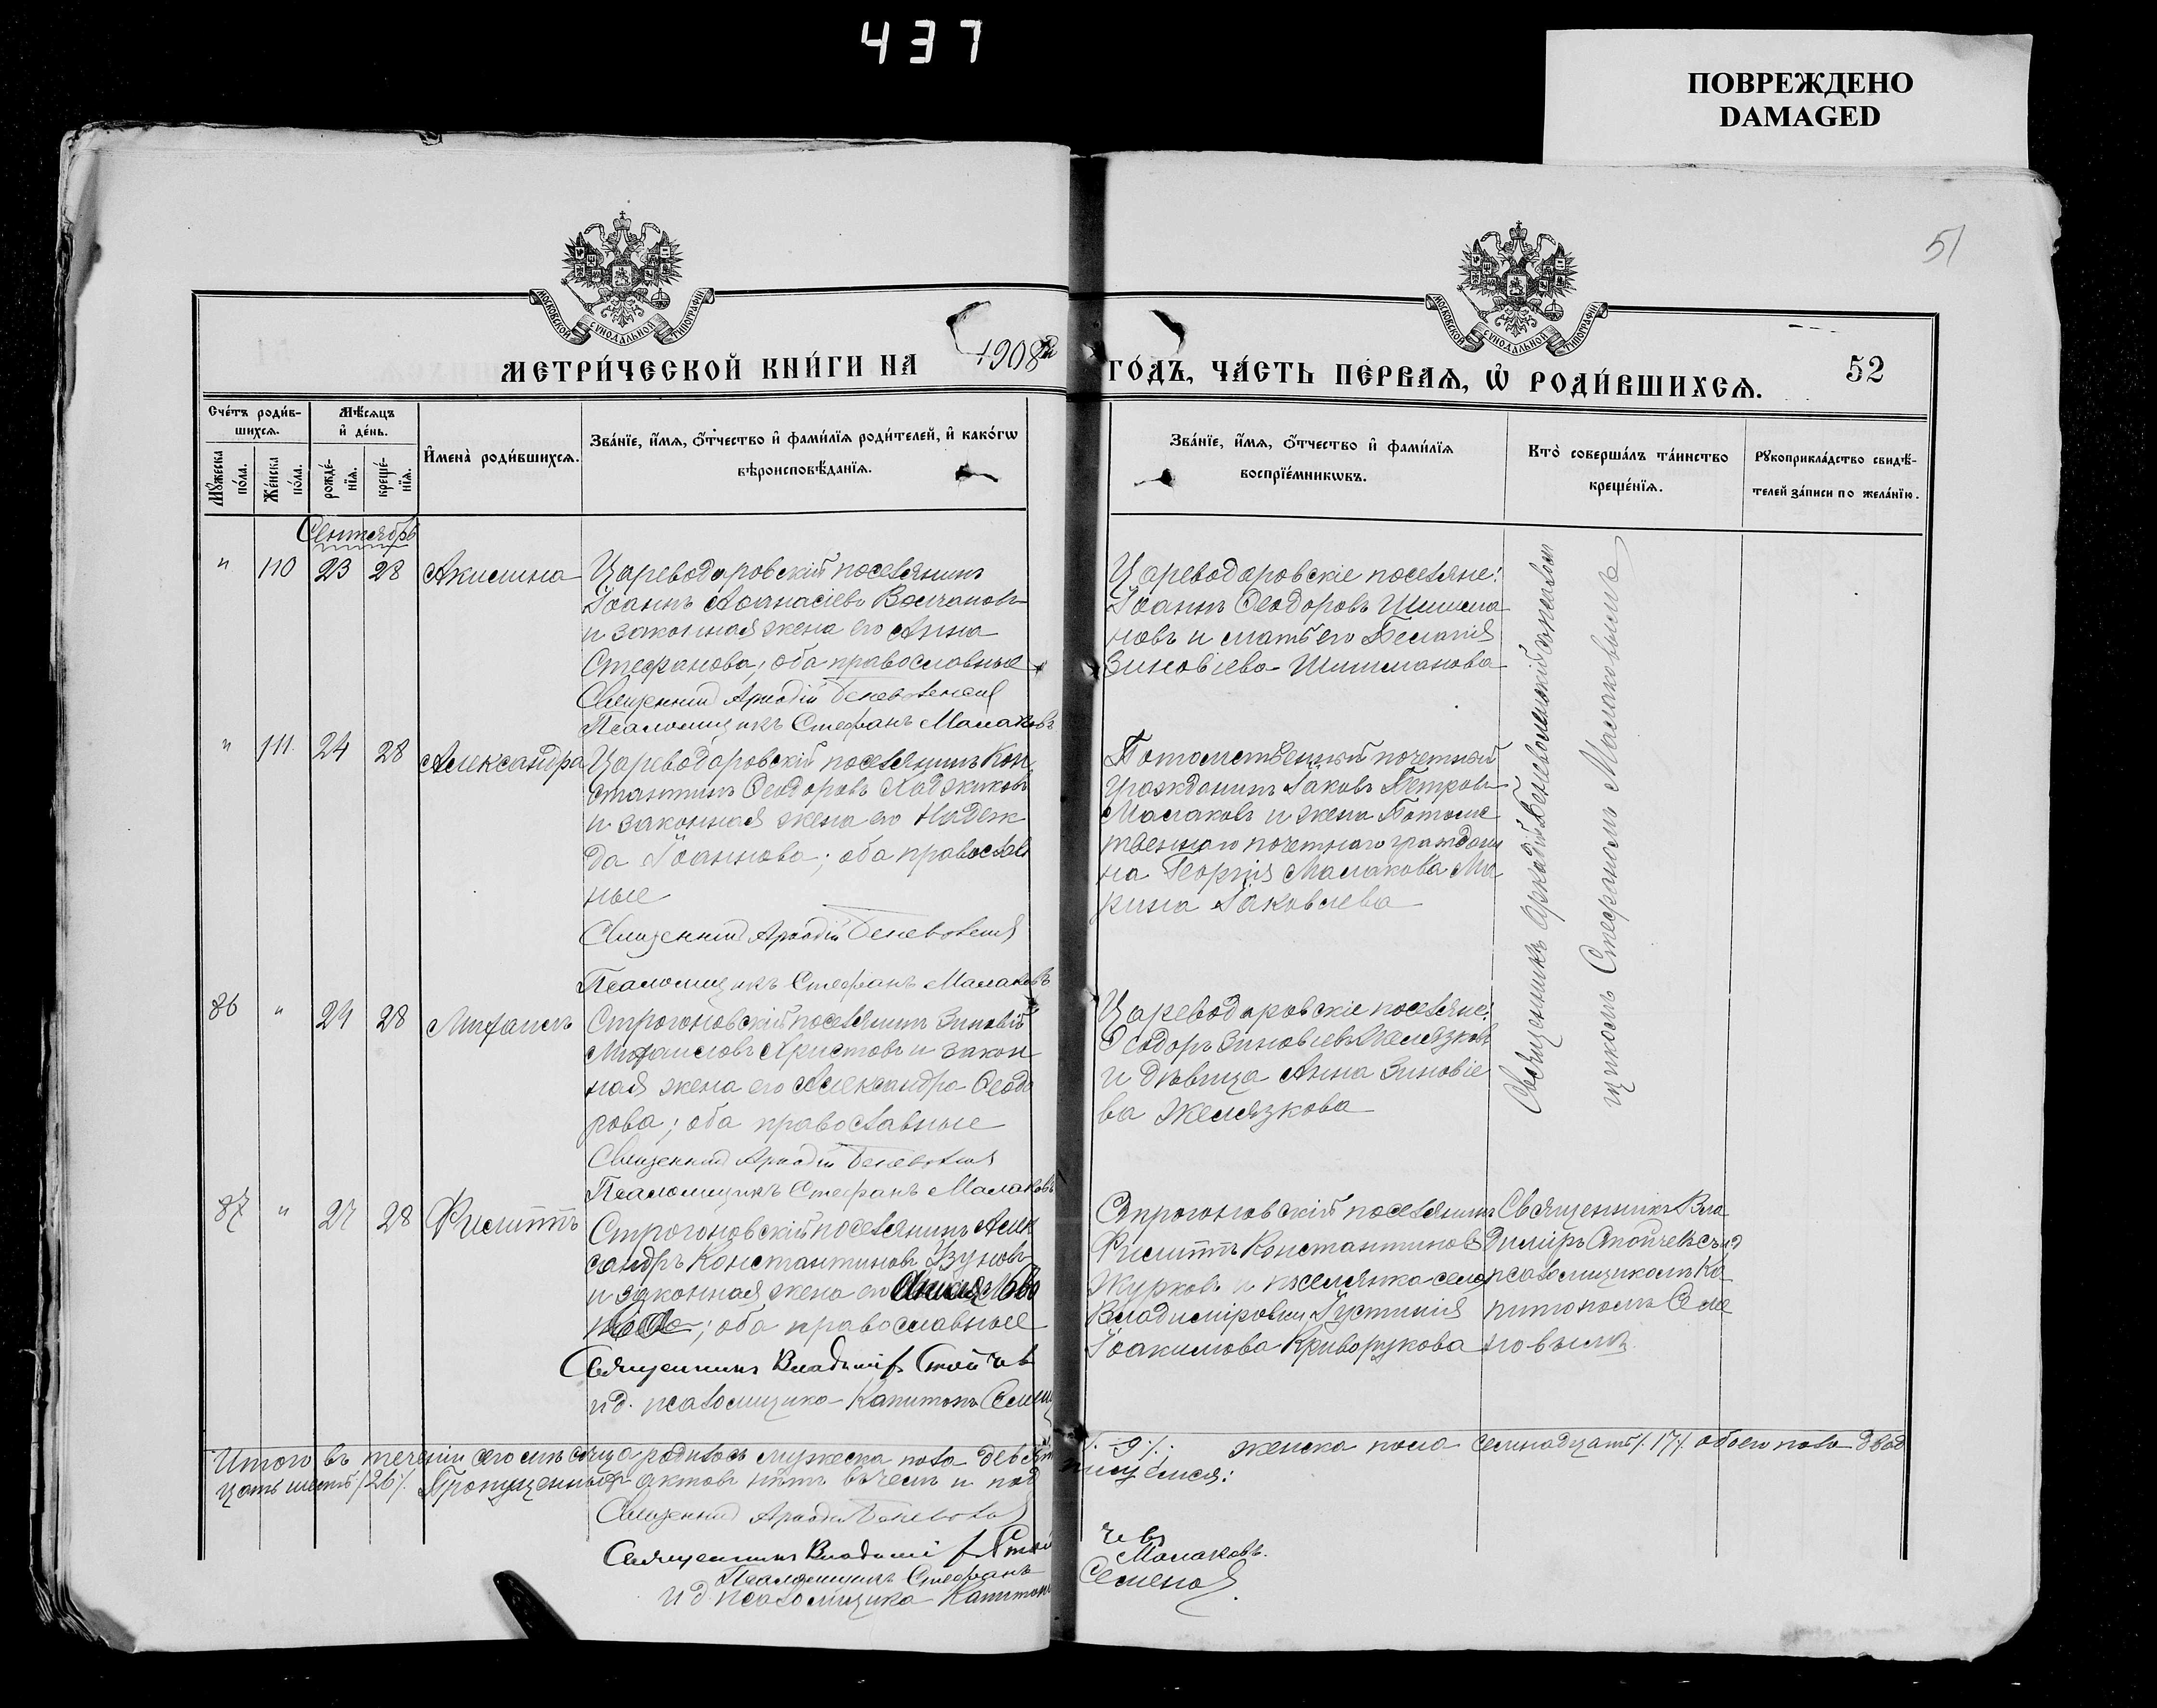 437
ПОВРЕЖДЕНО
DAMAGED
51
МОСКОВСКОЙ СѴНОДАЛЬНОЙ ТИПОГРАФІИ
МОСКОВСКОЙ СѴНОДАЛЬНОЙ ТИПОГРАФІИ
МЕТРИ́ЧЕСКОЙ КНИ́ГИ НА 1908й ГО́ДЪ, ЧА́СТЬ ПЕ́РВАЯ, Ѡ҆ РОДИ́ВШИХСЯ.
52
Сче́тъ роди́в-
шихся.
Мѣ́сяцъ
и҆ де́нь.
Мꙋ́жеска
по́ла.
Же́нска
по́ла.
рожде́-
нїя.
креще́-
нїя.
И҆мена̀ роди́вшихся.
Зва́нїе, и҆́мя, ѻ҆́тчество и҆ фами́лїя роди́телей, и҆ како́гѡ
вѣроисповѣ́данїя.
Зва́нїе, и҆́мя, ѻ҆́тчество и҆ фами́лїя
воспрїе́мникѡвъ.
Кто̀ соверша́лъ та́инство
креще́нїя.
Рꙋкоприкла́дство свидѣ́-
телей за́писи по жела́нїю.
Сентябрь
" 110 23 28 Акилина
Цареводаровскій поселянинъ
Іоаннъ Аѳанасіевъ Волчановъ
и законная жена его Анна
Стефанова, оба православные
Священникъ Аркадій Беневоленскій
Псаломщикъ Стефанъ Малаковъ
Цареводаровскіе поселяне:
Іоаннъ Ѳеодоровъ Шишма
новъ и мать его Пелагія
Зиновіева Шишманова
Священникъ Аркадій Беневоленскій съ псалом
щикомъ Стефаномъ Малаковымъ
" 111 24 28 Александра
Цареводаровскій поселянинъ Кон
стантинъ Ѳеодоровъ Хаджиковъ
и законная жена его Надеж
да Іоаннова; оба православ
ные
Священникъ Аркадій Беневоленскій
Псаломщикъ Стефанъ Малаковъ
Потомственный почетный
гражданинъ Іаковъ Петровъ
Малаковъ и жена Потомс
твеннаго почетнаго граждани
на Георгія Малакова Ма
рина Іаковлева
86 " 24 28 Михаилъ
Строгоновскій поселянинъ Зиновій
Михаиловъ Христовъ и закон
ная жена его Александра Ѳеодо
рова; оба православные
Священникъ Аркадій Беневоленскій
Псаломщикъ Стефанъ Малаковъ
Цареводаровскіе поселяне:
Ѳеодоръ Зиновіевъ Желязковъ
и дѣвица Анна Зиновіе
ва Желязкова
87 " 27 28 Филиппъ
Строгоновскій поселянинъ Алек
сандръ Константиновъ Узуновъ
и законная жена его
; оба православные
Священникъ Владиміръ Стойчевъ
и д. псаломщика Капитонъ Семеновъ
Строгоновскій поселянинъ
Филиппъ Константиновъ
Журковъ и поселянка села
Владиміровки Іустинія
Іоакимова Криворукова
Священникъ Вла
диміръ Стойчевъ съ и д
псаломщикомъ Ка
питономъ Семе
новымъ
Итого въ теченіи сего мѣсяца родилось мужеска пола девять /. 9 /.; женска пола семнадцать /. 17 /. обоего пола двад
цать шесть /. 26 /. Пропущенныхъ актовъ нѣтъ въ чемъ и подпишемся:
Священникъ Аркадій Беневоленскій
Священникъ Владиміръ Стойчевъ
Псаломщикъ Стефанъ Малаковъ.
И д псаломщика Капитонъ Семеновъ.